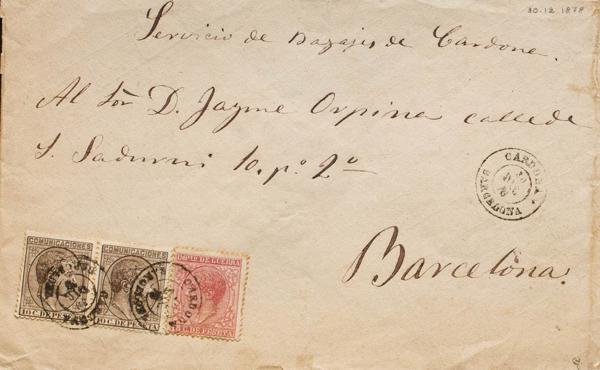 30.12 1878
Servicio de Bagajes de Cardona.
Al Sor D. Jayme Orpina calle de
S. Sadurni 10, po 2o
CARDONA
BARCELONA
Barcelona.
COMUNICACIONES COMUNICACIONES IMPTO DE GUERRA
10 C. DE PESETA 10 C. DE PESETA C. DE PESETA
CARDONA